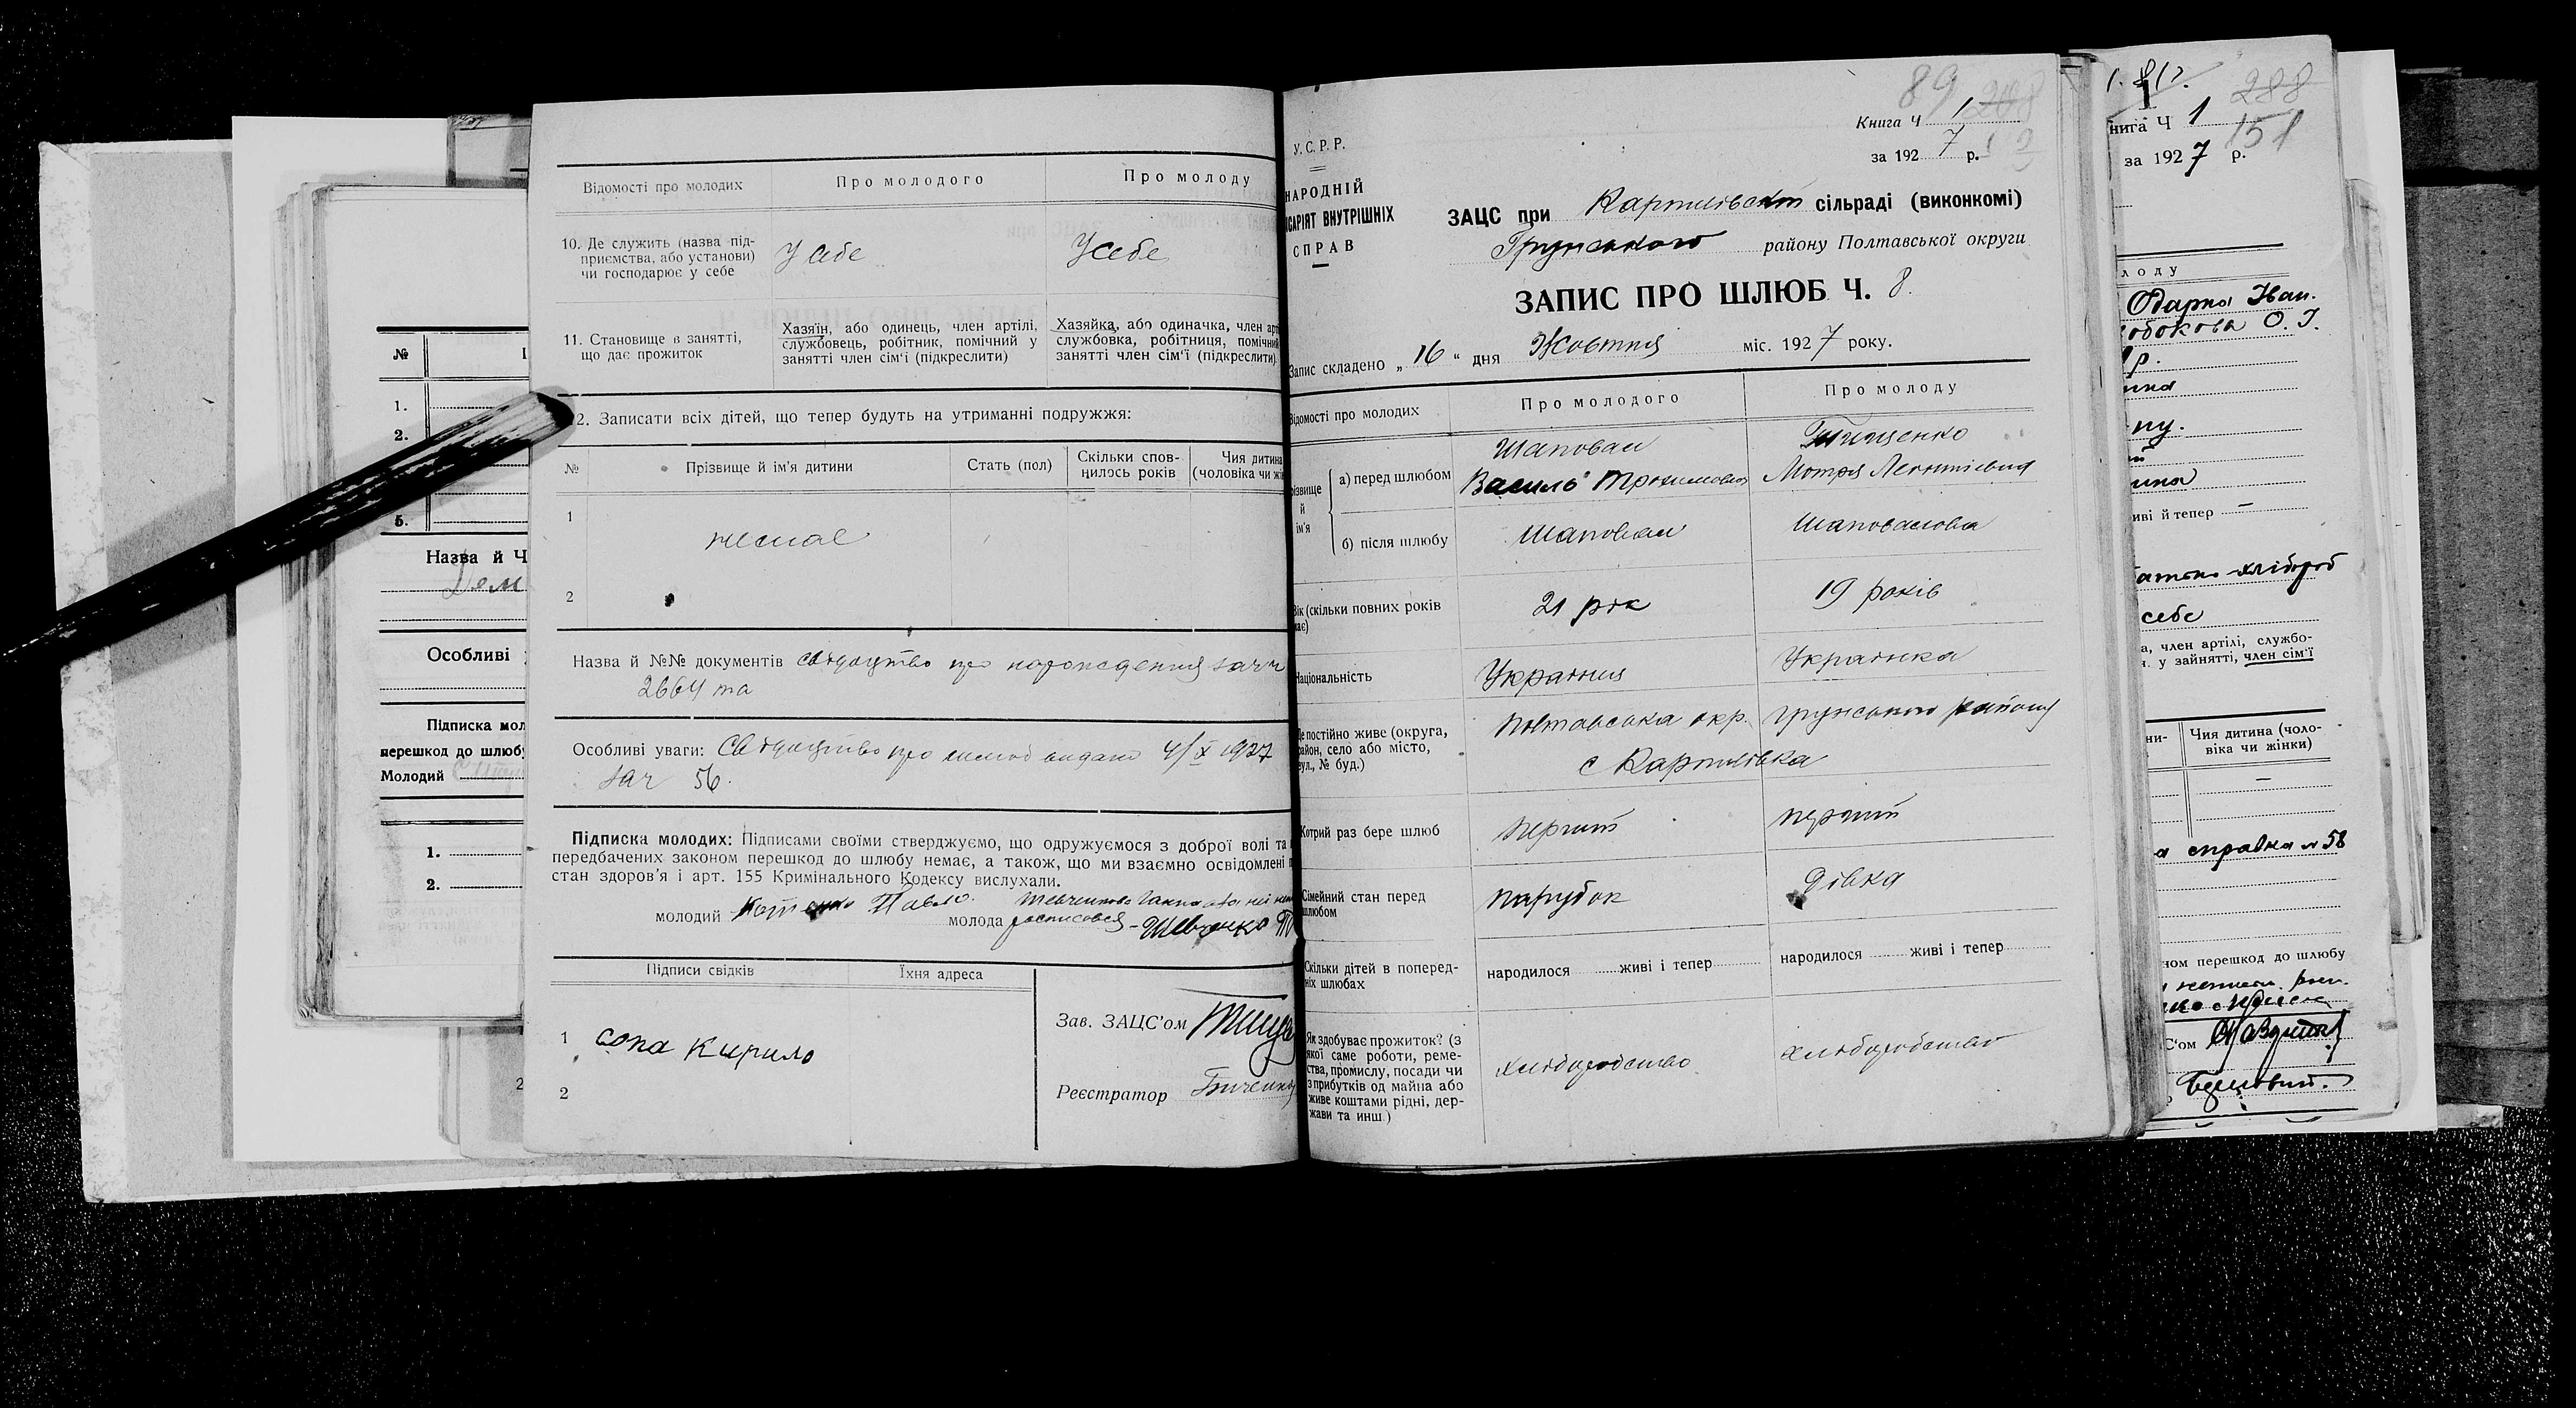 №
1.
2.
5.
Назва й Ч
Дем
Особливі
Підписка мол
перешкод до шлюбу
Молодий
1.
2.
Відомості про молодих
Про молодого
Про молоду
10. Де служить (назва під-
приємства, або установи)
чи господарює у себе
У себе
У себе
11. Становище в занятті,
що дає прожиток
Хазяїн, або одинець, член артілі,
службовець, робітник, помічний у
занятті член сім'ї (підкреслити)
Хазяйка, або одиначка, член арт
службовка, робітниця, помічний
занятті член сім'ї (підкреслити)
2. Записати всіх дітей, що тепер будуть на утриманні подружжя:
№
Прізвище й ім'я дитини
Стать (пол)
Скільки спов-
нилось років
Чия дитина
(чоловіка чи жін
1
немає
2
Назва й №№ документів свідоцтво про народження зачч
2664 та
Особливі уваги: Свідоцтво про шлюб видано 4/X 1927
зач 56.
Підписка молодих: Підписами своїми стверджуємо, що одружуємося з доброї волі та
передбачених законом перешкод до шлюбу немає, а також, що ми взаємно освідомлені п
стан здоров'я і арт. 155 Кримінального Кодексу вислухали.
молодий Павло
молода росписовся - Шевченко
Підписи свідків
Їхня адреса
1 Сопа Кирило
2
Зав. ЗАЦС'ом
Реєстратор
89 208
Книга Ч 1
за 1927 р.
У.С.Р.Р.
НАРОДНІЙ
ІСАРІЯТ ВНУТРІШНІХ
СПРАВ
ЗАЦС при Карпилівській сільраді (виконкомі)
Грунського району Полтавської округи
ЗАПИС ПРО ШЛЮБ Ч. 8.
Запис складено „ 16 " дня Жовтня міс. 1927 року.
Відомості про молодих
Про молодого
Про молоду
різвище
й
ім'я
а) перед шлюбом
Шаповал
Василь Трохимович
Тищенко
Мотря Леонтіевна
б) після шлюбу
Шаповал
Шаповалова
Вік (скільки повних років
має)
21 рік
19 років
Національність
Українця
Українка
Де постійно живе (округа,
район, село або місто,
вул., № буд.)
Полтавська окр. Грунського району
с Карпилівка
Котрий раз бере шлюб
перший
перший
Сімейний стан перед
шлюбом
парубок
дівка
Скільки дітей в поперед-
ніх шлюбах
народилося живі і тепер
народилося живі і тепер
Як здобуває прожиток? (з
якої саме роботи, реме-
ства, промислу, посади чи
з прибутків од майна або
живе коштами рідні, дер-
жави та инш.)
хліборобство
хліборобство
288
нига Ч 1
151
за 1927 р.
лоду
Одарка Іван.
О. І.
р.
ина
иві й тепер —
хлібороб
себе
а, член артілі, службо-
н. у зайнятті, член сім'ї
ни-
Чия дитина (чоло-
віка чи жінки)
—
а справка № 58
ном перешкод до шлюбу
С'ом